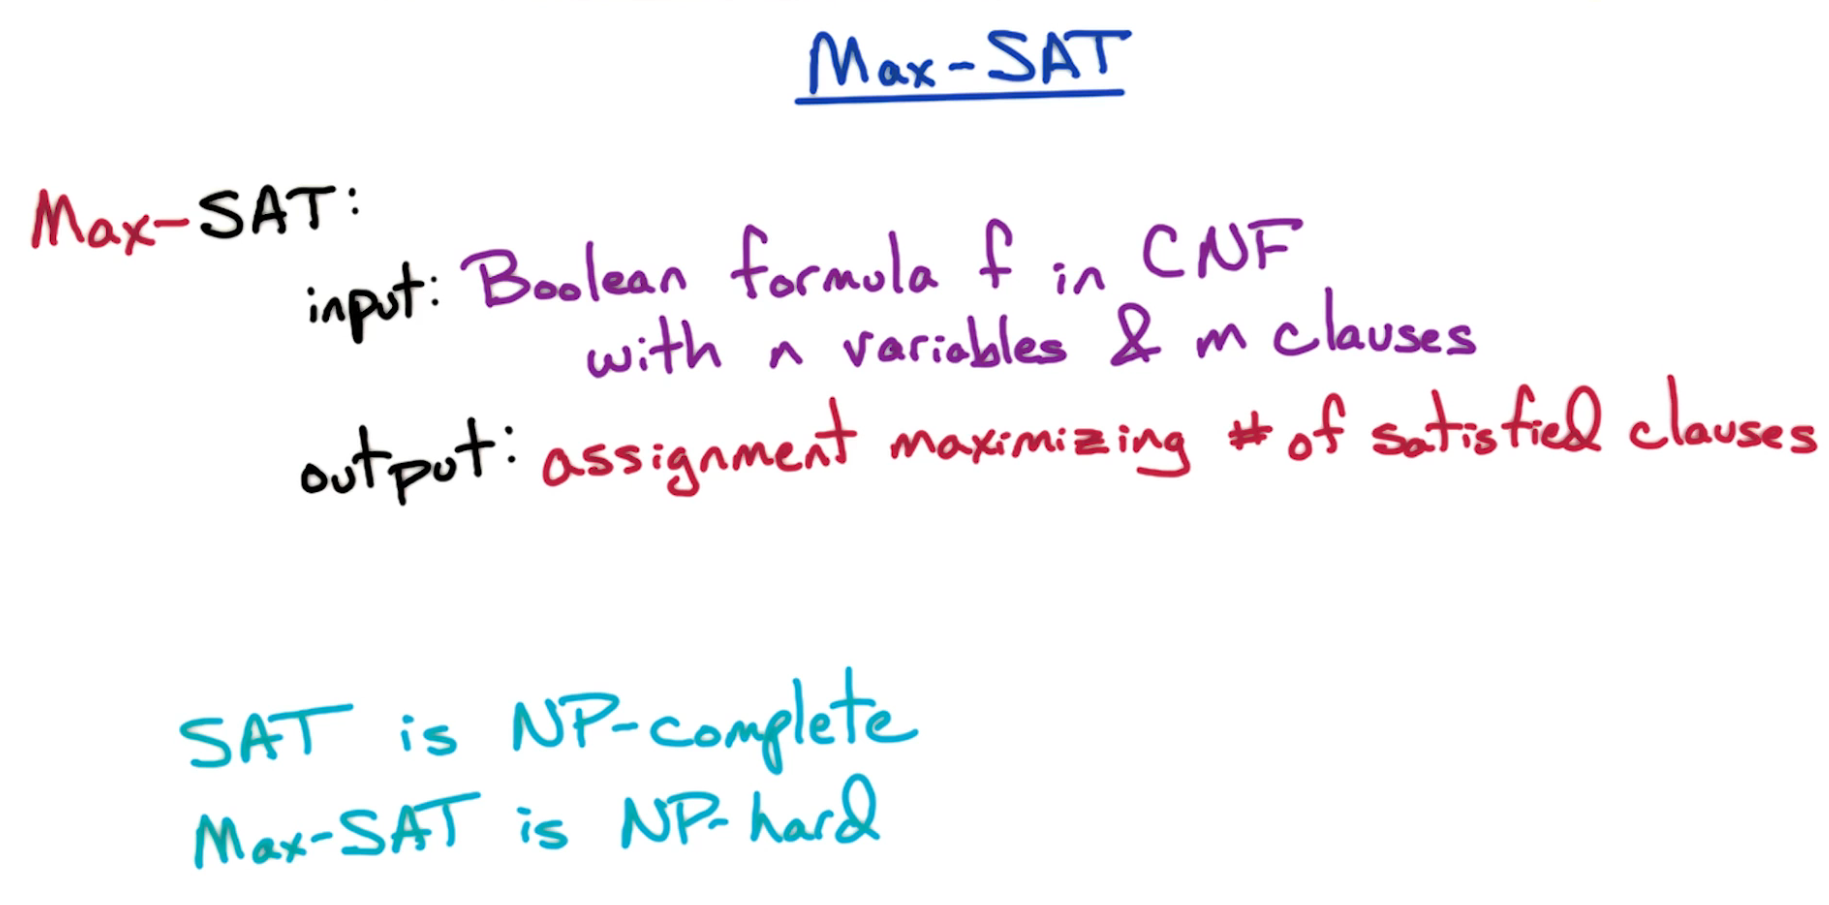 Max-SAT
Max-SAT:
input: Boolean formula f in CNF
with n variables & m clauses
output: assignment maximizing # of satisfied clauses
SAT is NP-complete
Max-SAT is NP-hard